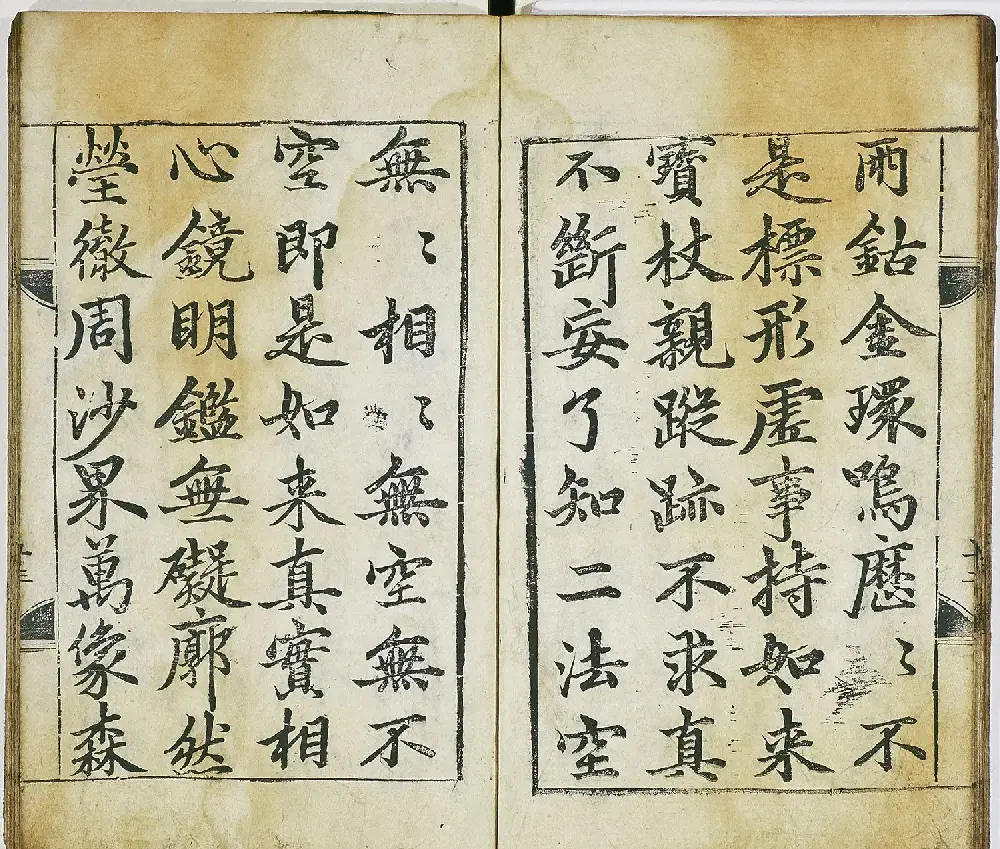 兩鈷金環鳴歷〻不
是標形虛事持如来
寶杖親蹤跡不求真
不斷妄了知二法空
無〻相〻無空無不
空即是如来真實相
心鏡明鑑無礙廓然
瑩徹周沙界萬象森